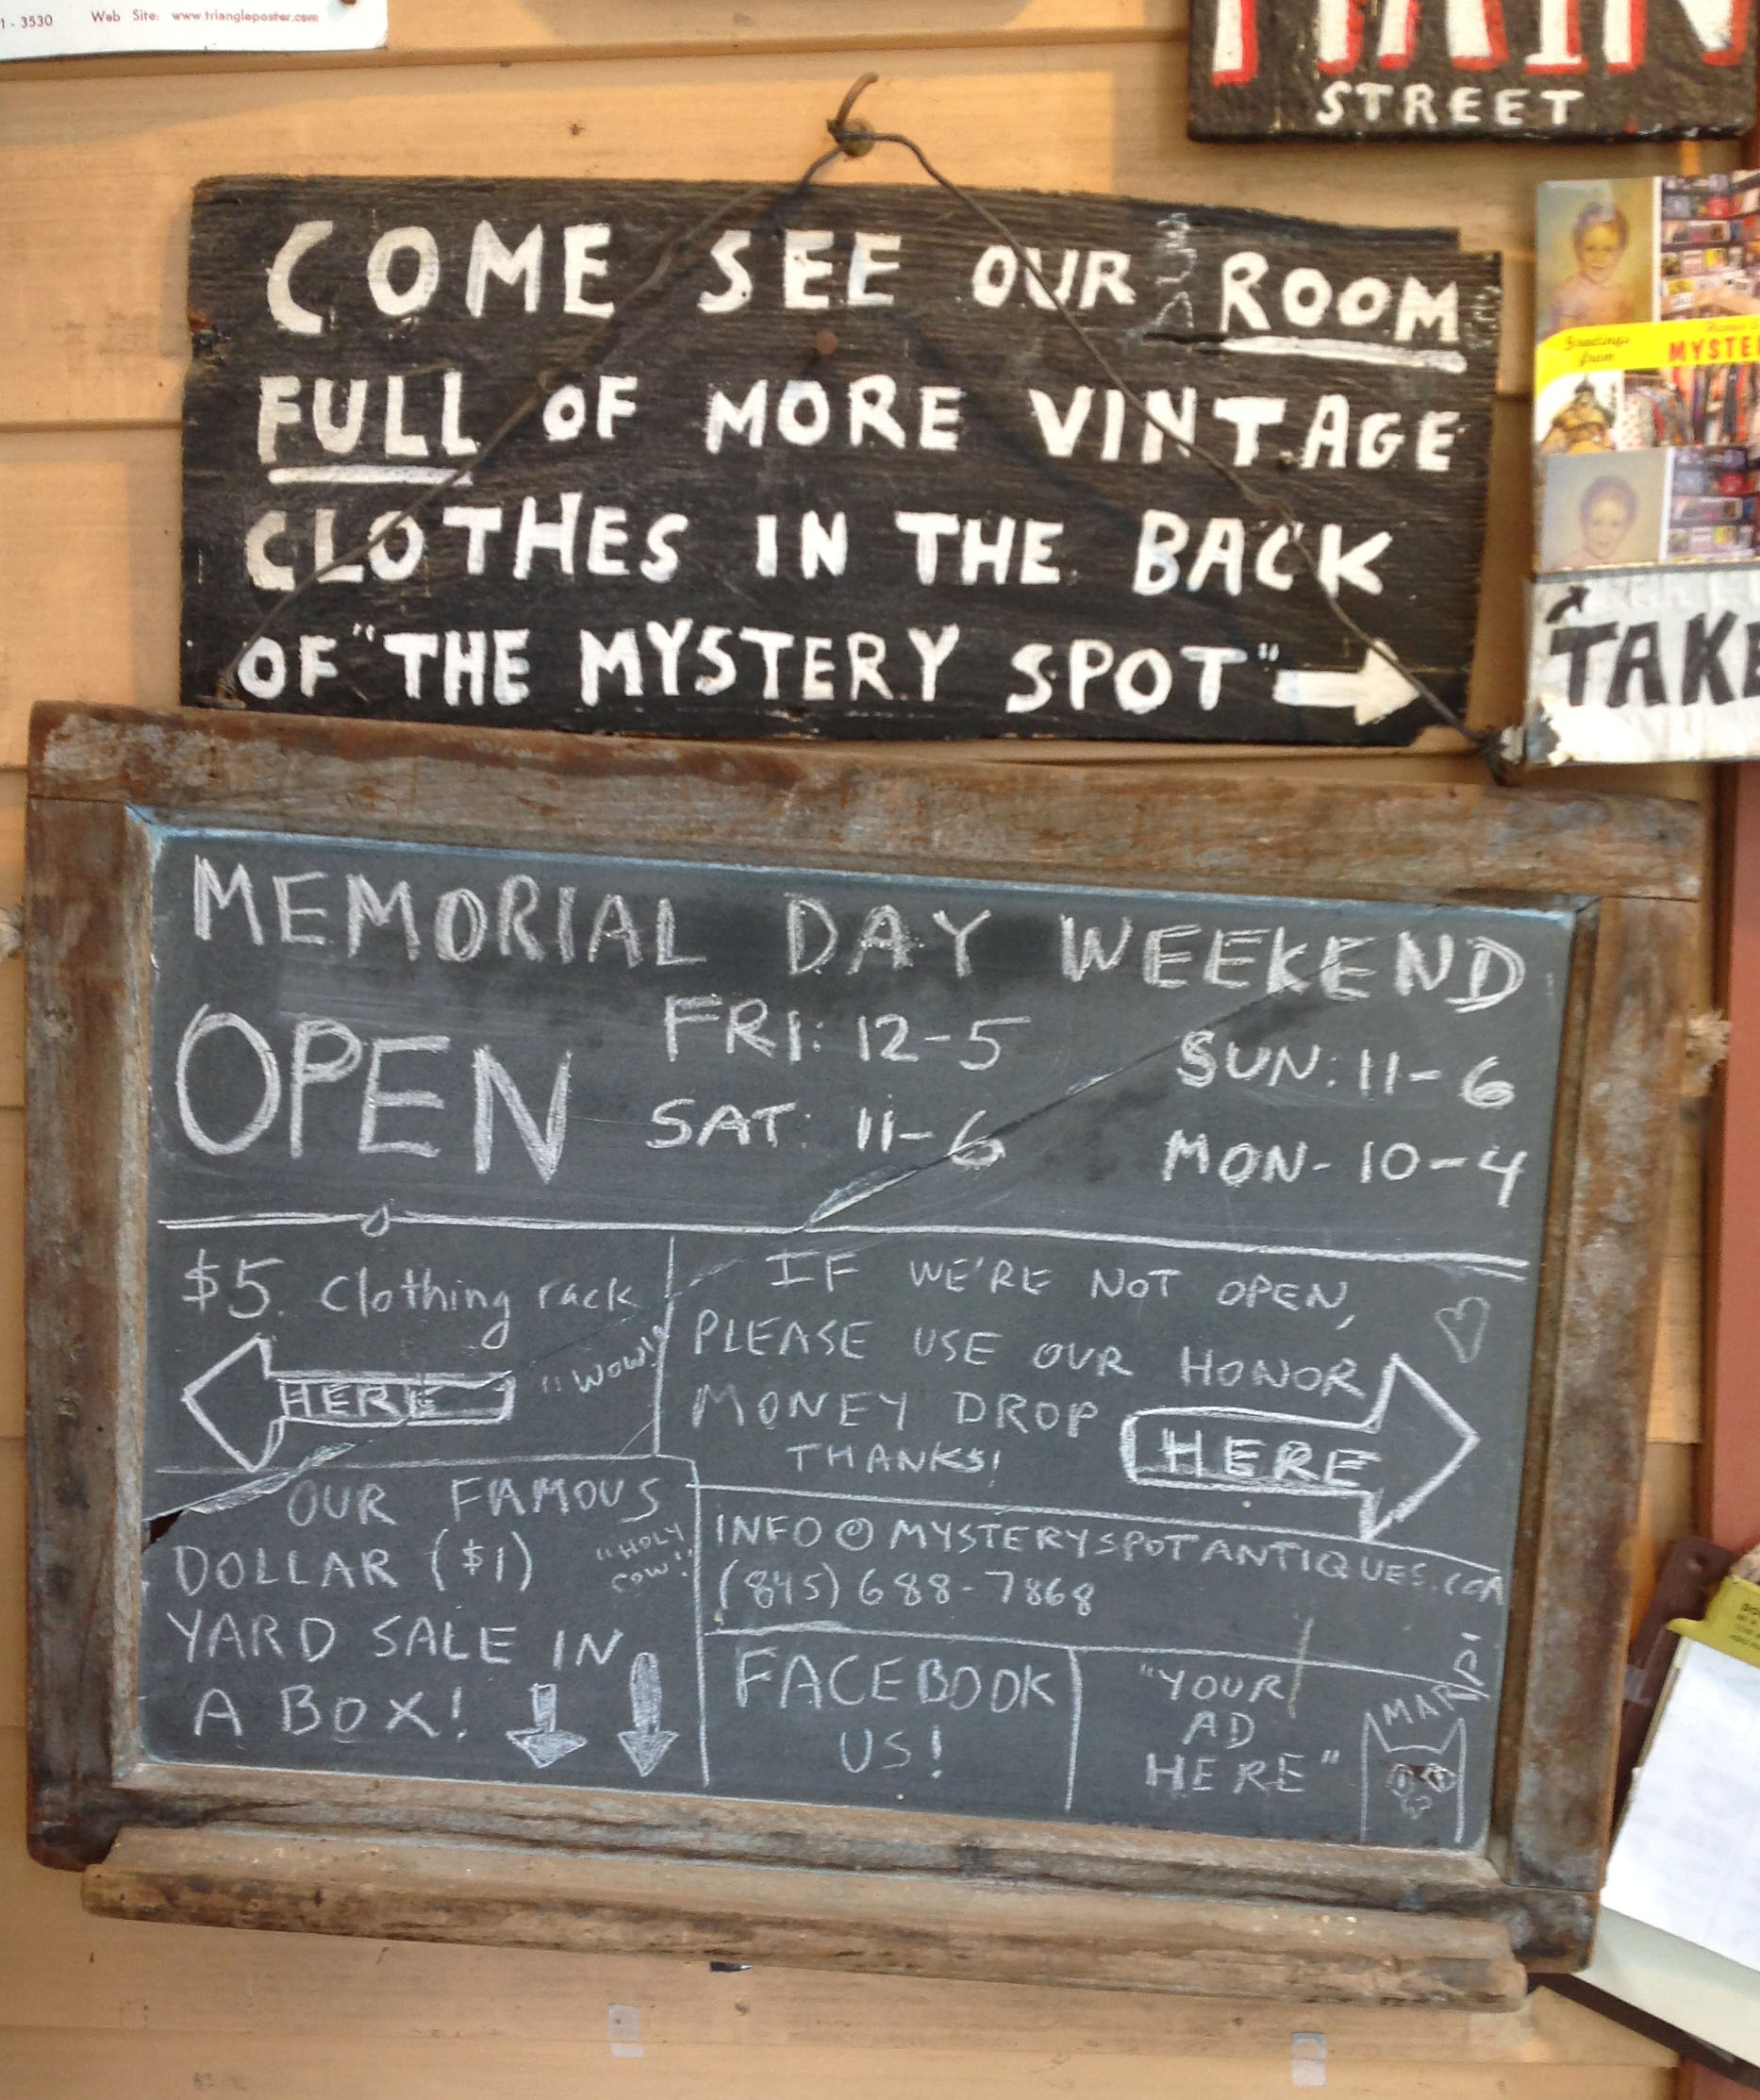 1 - 3530 Web Site: www.triangleposter.com
MAIN
STREET
COME SEE OUR ROOM
FULL OF MORE VINTAGE
CLOTHES IN THE BACK
OF "THE MYSTERY SPOT"
Greetings
from
MYSTE
TAKE
MEMORIAL DAY WEEKEND
OPEN
FRI: 12-5
SAT: 11-6
SUN: 11-6
MON- 10-4
$5. Clothing rack
HERE
"WOW!"
IF WE'RE NOT OPEN,
PLEASE USE OUR HONOR
MONEY DROP
THANKS!
HERE
OUR FAMOUS
DOLLAR ($1)
"HOLY
COW!"
YARD SALE IN
A BOX!
INFO@MYSTERYSPOTANTIQUES.COM
(845) 688-7868
FACEBOOK
US!
"YOUR
AD
HERE"